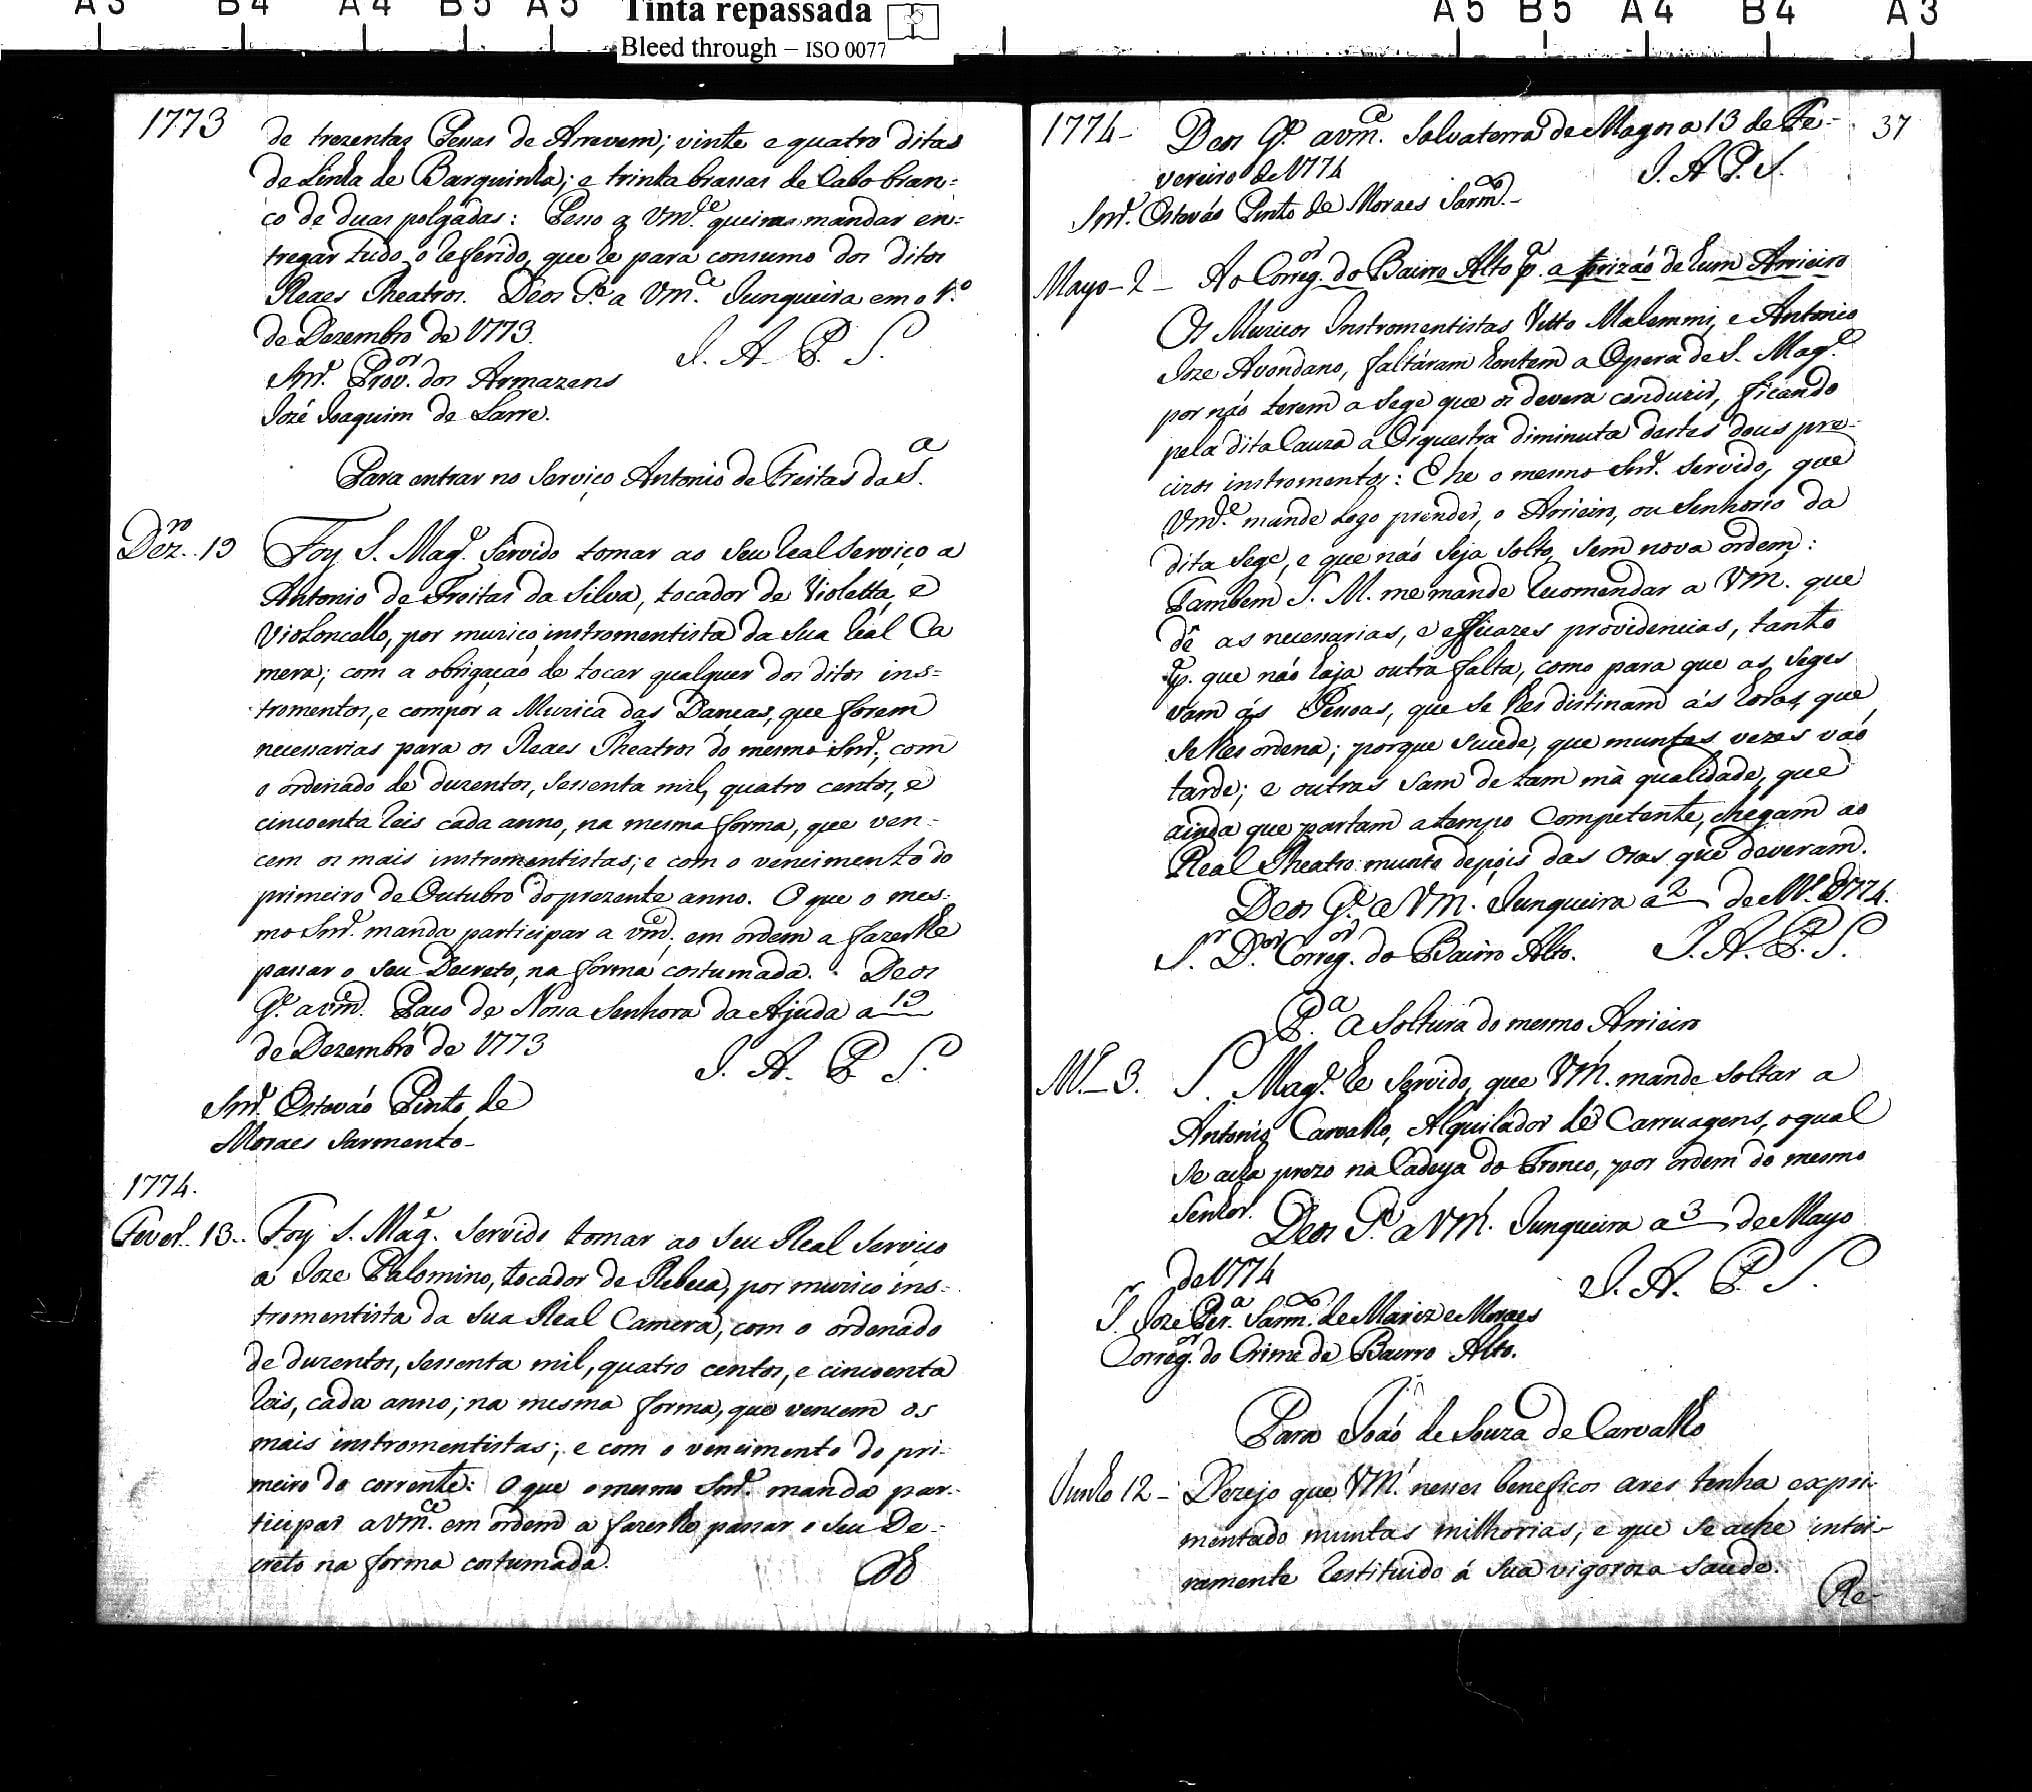 A3 B4 A4 B5 A5 Tinta repassada A5 B5 A4 B4 A3
Bleed through – ISO 0077
1773
de trezentas Pessas de Arrevem; vinte e quatro ditas
de Linha de Barquinha; e trinta brassas de Cabo bran=
co de duas polgadas: Pesso q Vm.ce queira mandar en=
tregar tudo o Referido, que he para consumo dos ditos
Reaes Theatros. Deos G.e a Vm.ce Junqueira em o 1.º
de Dezembro de 1773.
J. A. P. S.
Snr. Prov.or dos Armazens
José Joaquim de Larre.
Para entrar no Serviço Antonio de Freitas da S.a
Dez.ro 19
Foy S. Mag.e Servido tomar ao Seu Real Serviço a
Antonio de Freitas da Silva, tocador de Violetta, e
Violoncello, por muzico instromentista da Sua Real Ca
mera; com a obrigação de tocar qualquer dos ditos ins=
tromentos, e compor a Muzica das Danças, que forem
necessarias para os Reaes Theatros do mesmo Snr., com
o ordenado de duzentos, sessenta mil, quatro centos, e
cincoenta Reis cada anno, na mesma forma, que ven=
cem os mais instromentistas; e com o vencimento do
primeiro de Outubro do prezente anno. O que o mes=
mo Snr. manda participar a vm.ce em ordem a fazerlhe
passar o Seu Decreto, na forma costumada. Deos
G.e a vm.ce Paço de Nossa Senhora da Ajuda a 19
de Dezembro de 1773
J. A. P. S.
Snr. Estevaõ Pinto de
Moraes Sarmento-
1774.
Fever.o 13..
Foy S. Mag.e Servido tomar ao Seu Real Serviço
a Joze Palomino, tocador de Rebeca, por muzico ins=
tromentista da Sua Real Camera, com o ordenado
de duzentos, sessenta mil, quatro centos, e cincoenta
Reis, cada anno; na mesma forma, que vencem os
mais instromentistas; e com o vencimento do pri=
meiro do corrente: O que o mesmo Snr. manda par=
ticipar a Vm.ce em ordem a fazerlhe passar o Seu De=
creto na forma costumada.
1774- 37
Deos G.e a vm.ce Salvaterra de Magos a 13 de Fe=
vereiro de 1774
J. A. P. S.
Snr. Estevaõ Pinto de Moraes Sarm.to-
Mayo-2-
Ao Correg.or do Bairro Alto p.a a prizaõ de hum Arrieiro
Os Muzicos Instromentistas Vitto Malemmi, e Antonio
Joze Avondano, faltáram hontem a Opera de S. Mag.e
por naõ terem a Sege que os devera conduzir, ficando
pela dita Cauza a Orquestra diminuta destes dous pre=
cizos instromentos: E he o mesmo Snr. Servido, que
Vm.ce mande Logo prender, o Arrieiro, ou Senhorio da
dita Sege, e que naõ Seja Solto, Sem nova ordem:
Tambem S. M. me manda Recomendar a VM. que
dê as necessarias, e efficazes providencias, tanto
p.a que naõ haja outra falta, como para que as Seges
vam ás Pessoas, que Se lhes distinam ás horas, que
Se lhes ordena; porque Sucede, que muntas vezes vaõ
tarde; e outras Sam de tam mà qualidade, que
ainda que partam a tempo Competente, chegam ao
Real Theatro munto depois das oras que deveram.
Deos G.e a VM. Junqueira a 2 de M.o d 1774.
S.r D.or Correg.or do Bairro Alto.
J. A. P. S.
P.a a Soltura do mesmo Arrieiro
M.o-3.
S. Mag.e he Servido, que VM. mande Soltar a
Antonio Carvalho, Alquilador de Carruagens, o qual
Se acha prezo na Cadeya do Tronco, por ordem do mesmo
Senhor.
Deos G.e a VM. Junqueira a 3 de Mayo
de 1774
J. A. P. S.
S.r Joze Per.a Sarm.to de Mariz e Moraes
Correg.or do Crime do Bairro Alto.
Para Joaõ de Souza de Carvalho
Junho 12-
Dezejo que VM. nesses beneficos ares tenha expri=
mentado muntas milhorias, e que Se ache intei=
ramente Restituido á Sua vigoroza Saude.
Re-